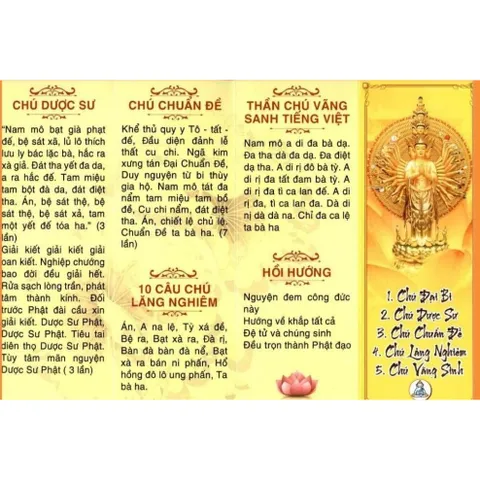 CHÚ DƯỢC SƯ
“Nam mô bạt già phạt
đế, bệ sát xã, lủ lô thích
lưu ly bác lặc bà, hắc ra
xà giả. Đát tha yết đa da,
a ra hắc đế. Tam miệu
tam bột đà da, đát điệt
tha. Án, bệ sát thệ, bệ
sát thệ, bệ sát xả, tam
một yết đế tóa ha.” (3
lần)
Giải kiết giải kiết giải
oan kiết. Nghiệp chướng
bao đời đều giải hết.
Rửa sạch lòng trần, phát
tâm thành kính. Đối
trước Phật đài cầu xin
giải kiết. Dược Sư Phật,
Dược Sư Phật. Tiêu tai
diên thọ Dược Sư Phật.
Tùy tâm mãn nguyện
Dược Sư Phật ( 3 lần)
CHÚ CHUẨN ĐỀ
Khể thủ quy y Tô - tất -
đế, Đầu diện đảnh lễ
thất cu chi. Ngã kim
xưng tán Đại Chuẩn Đề,
Duy nguyện từ bi thùy
gia hộ. Nam mô tát đa
nẩm tam miệu tam bồ
đề, Cu chi nẩm, đát điệt
tha. Án, chiết lệ chủ lệ.
Chuẩn Đề ta bà ha. (7
lần)
10 CÂU CHÚ
LĂNG NGHIÊM
Án, A na lệ, Tỳ xá đề,
Bệ ra, Bạt xà ra, Đà rị,
Bàn đà bàn đà nể, Bạt
xà ra bán ni phấn, Hổ
hồng đô lô ung phấn, Ta
bà ha.
THẦN CHÚ VÃNG
SANH TIẾNG VIỆT
Nam mô a di đa bà dạ.
Đa tha dà đa dạ. Đa điệt
dạ tha. A di rị đô bà tỳ. A
di rị đa tất đam bà tỳ. A
di rị đa tì ca lan đế. A di
rị đa, tì ca lan đa. Dà di
nị dà dà na. Chỉ đa ca lệ
ta bà ha
HỒI HƯỚNG
Nguyện đem công đức
này
Hướng về khắp tất cả
Đệ tử và chúng sinh
Đều trọn thành Phật đạo
1. Chú Đại Bi
2. Chú Dược Sư
3. Chú Chuẩn Đề
4. Chú Lăng Nghiêm
5. Chú Vãng Sinh